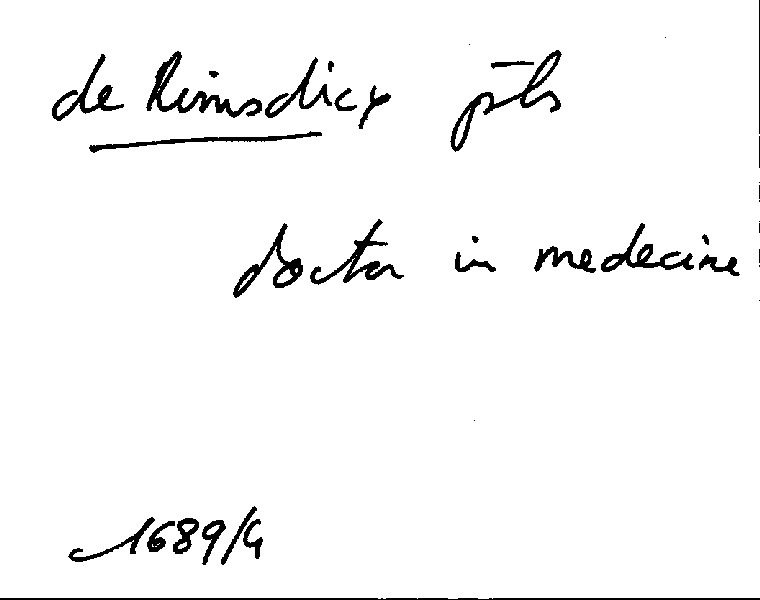 de Rimsdicx p̄ls
doctor in medecine
1689/4